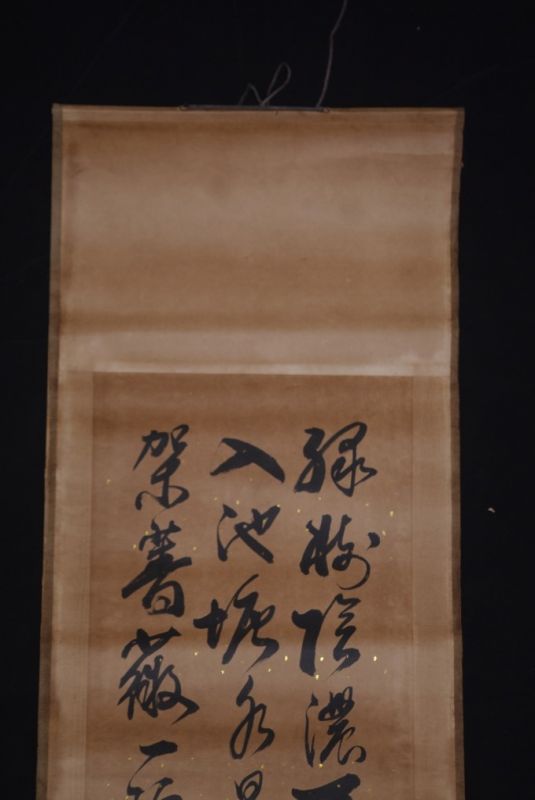 綠樹陰濃夏
入池塘水晶
架薔薇一院